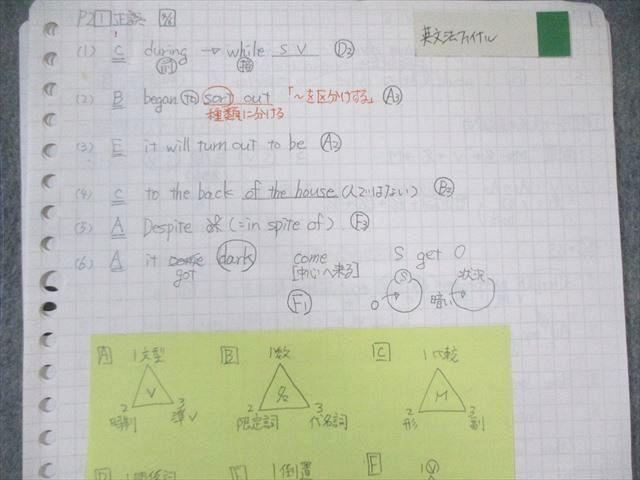 P21 正誤
英文法ファイナル
(1) C during → while S V D3
前 接
(2) B began to sort out 「〜を区分けする」 A3
種類に分ける
(3) E it will turn out to be A3
(4) C to the back of the house (人ではない) B3
(5) A Despite of (=in spite of) F3
(6) A it come dark come S get O
got [中心へ来る] S 状況
F1 O 暗い
A 1文型 B 1数 C 1比較
V 名 M
2 3 2 3 2 3
時制 準V 限定詞 代名詞 形 副
D 1関係詞 E 1倒置 F 1